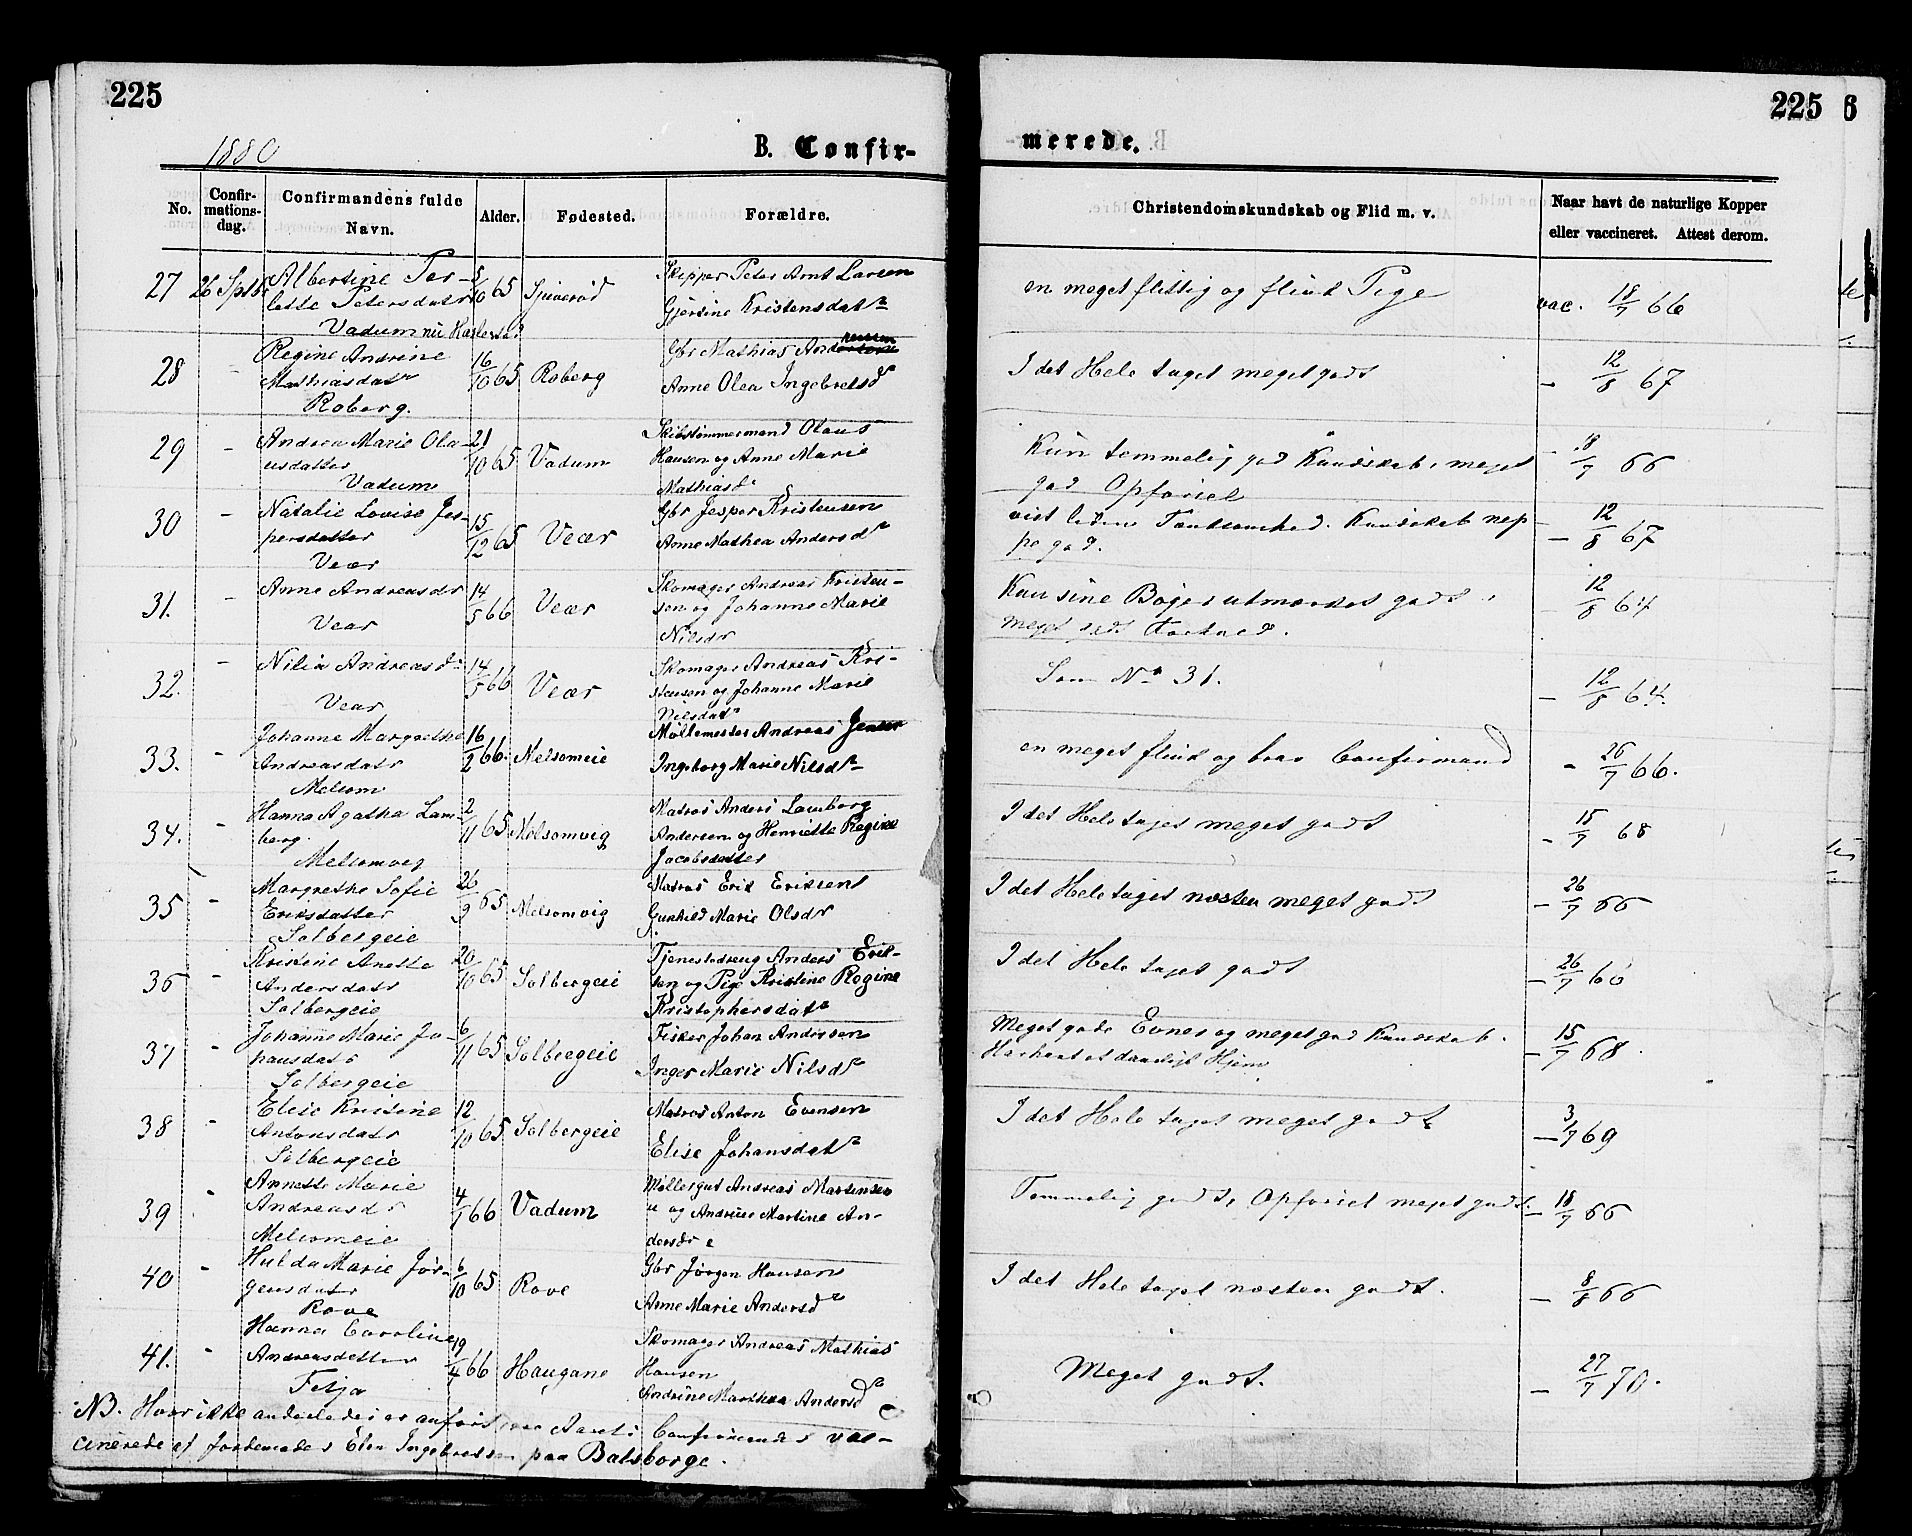 225
1880
B. Confir-
No.
Confir-
mations-
dag.
Confirmandens fulde
Navn.
Alder.
Fødested.
Forældre.
27 26 Sptbr Albertine Tor- 5/10 65 Skipper Peter Arnt Larsen
lette Petersdatr Gjertine Kristensdatr
Vadum nu
28 - Regine Andrine 16/10 65 Roberg Gbr Mathias Andreassen
Mathiasdatr Anne Olea Ingebretsdr
Roberg.
29 - Andrea Marie Ola- 21/10 65 Vadum Skibstømmermand Olaus
usdatter Hansen og Anne Marie
Vadum Mathiasdr
30 - Natalie Lovise Jes- 15/12 65 Veær Gbr Jesper Kristensen
persdatter Anne Mathea Andersdr
Veær
31. - Anne Andreasdr 14/5 66 Veær Skomager Andreas Kristen-
sen og Johanne Marie
Vear Nilsdr
32. - Nilia Andreasdr 14/5 66 Veær Skomager Andreas Kri-
stensen og Johanne Marie
Vear Nilsdatr
33. - Johanne Margrethe 16/2 66. Melsomeie Møllemester Andreas Jensen
Andreasdatr Ingeborg Marie Nilsdr
Melsom
34. - Hanna Agatha Lam- 2/11 65 Melsomvig Matros Anders Lamberg
berg. Andersen og Henriette Regine
Melsomvig Jacobsdatter
35 - Margrethe Sofie 26/9 65 Melsomvig Matros Erik Eriksen
Eriksdatter Gunhild Marie Olsdr
Solbergeie
36 - Kristine Anette 20/10 65 Solbergeie Tjenestedreng Anders Erik-
Andersdatr sen og Pige Kristine Regine
Solbergeie Kristophersdatr
37 - Johanne Marie Jo- 6/11 65 Solbergeie Fisker Johan Andersen
hansdatr Inger Marie Nilsdr
Solbergeie
38 - Elise Kristine 12/10 65 Solbergeie Matros Anton Evensen
Antonsdatr Elise Johansdatr
Solbergeie
39 - Annette Marie 4/1 66 Vadum Møllergut Andreas Martinsen
Andreasdr og Andrine Martine An-
Melsomeie dersdr
40 - Hulda Marie Jør- 6/10 65 Rove Gbr Jørgen Hansen
gensdatr Anne Marie Andersdr
Rove
41. - Hanna Caroline 19/4 66 Haugane Skomager Andreas Mathias
Andreasdatter Hansen
Feljo Andrine Marthea Andersdr
NB. Hvor ikke anderledes er anført ere Aarets Confirmander vac-
cinerede af Jordemoder Elen Ingebretsen paa Balsborge.
225
6
merede.
Christendomskundskab og Flid m. v.
Naar havt de naturlige Kopper
eller vaccineret. Attest derom.
en meget flittig og flink Pige vac. 18/7 66
I det Hele taget meget godt - 12/8 67
Kun temmelig god Kundskab, meget - 18/7 66
god Opførsel
vist liden Tænksomhed. Kundskab nep- - 12/8 67
pe god.
Kan sine Bøger udmærket godt, - 12/8 64
meget godt
Som No 31. - 12/8 64.
en meget flink og brav Confirmand - 26/7 66.
I det Hele taget meget godt - 15/7 68
I det Hele taget næsten meget godt - 26/7 66
I det Hele taget godt - 26/7 66
Meget gode Evner og meget god Kundskab. - 15/7 68.
Har havt et daarligt Hjem
I det Hele taget meget godt - 3/7 69
Temmelig godt, Opførsel meget godt. - 18/7 66
I det Hele taget næsten godt. - 8/8 66
Meget godt. - 27/7 70.